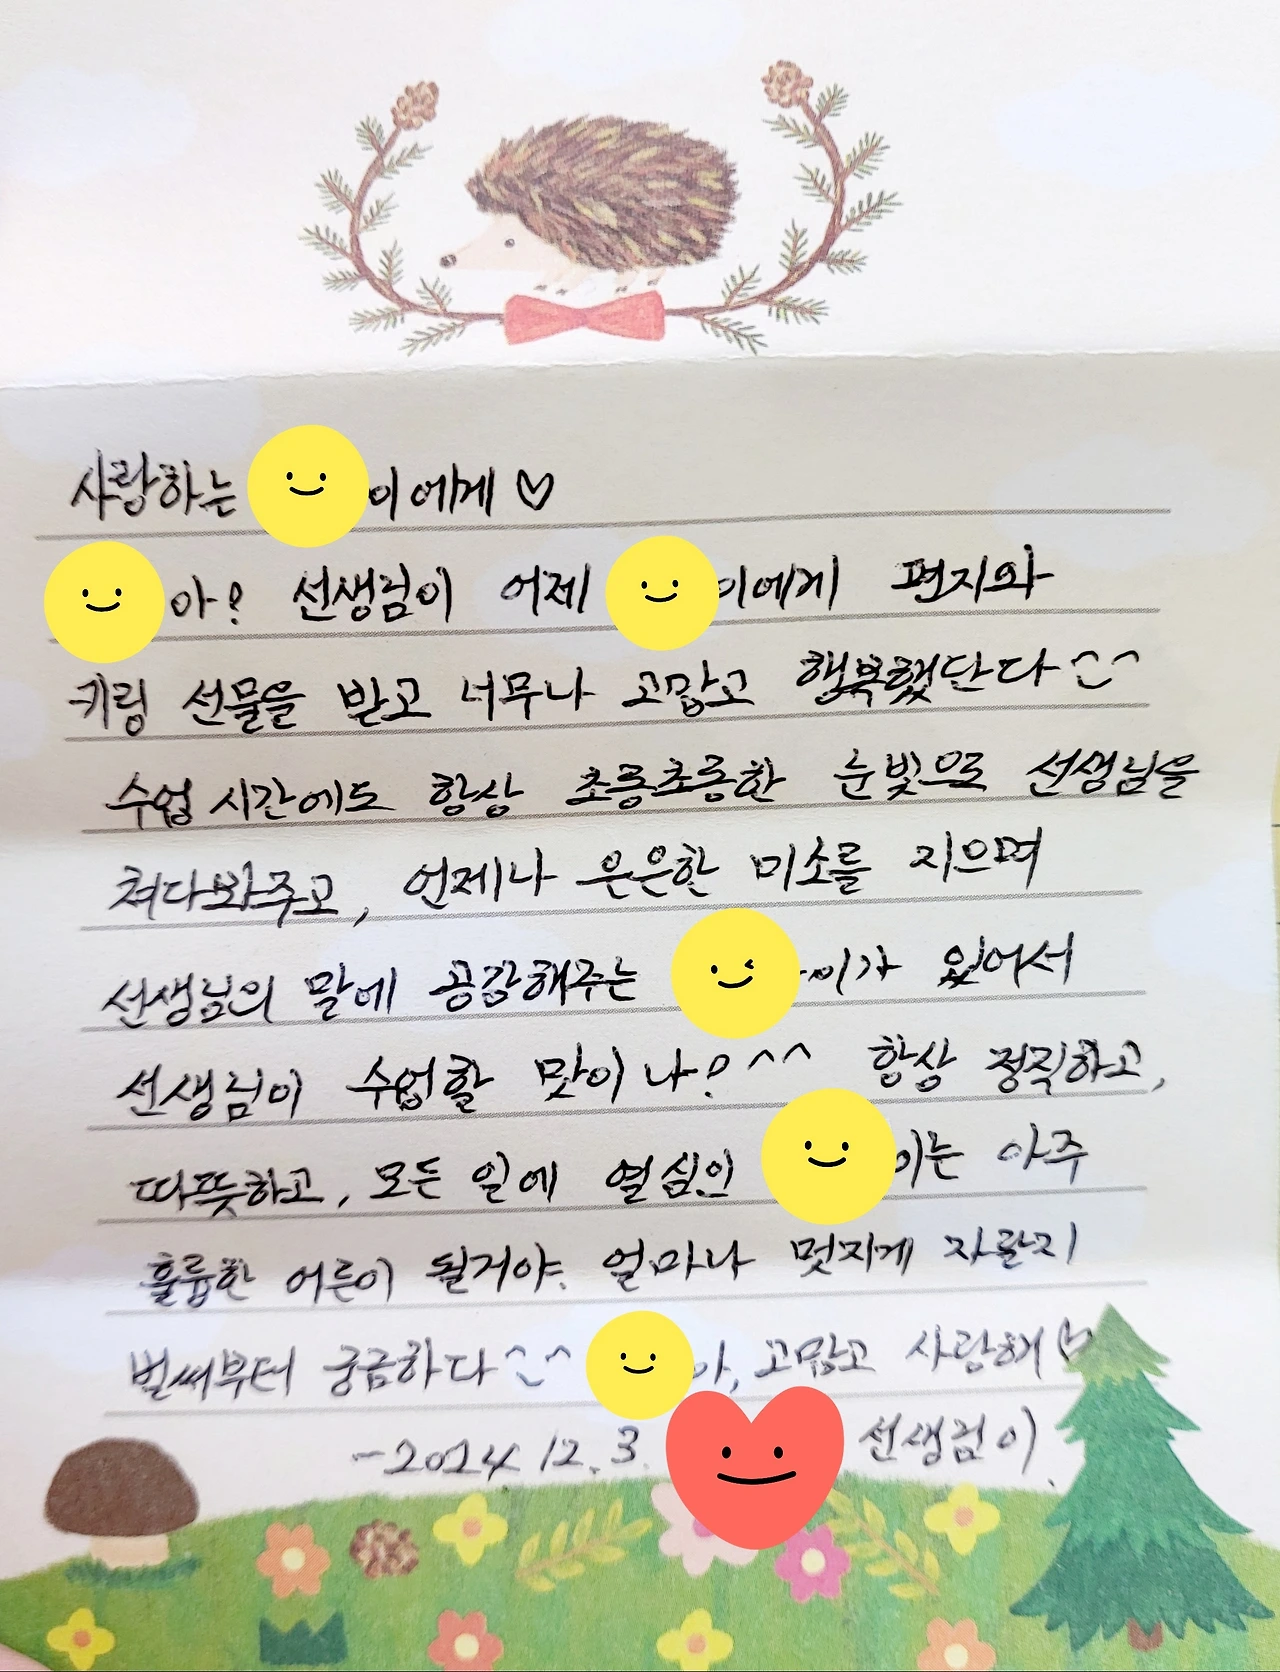 사랑하는 이에게 ♡
아? 선생님이 어제 이에게 편지와
키링 선물을 받고 너무나 고맙고 행복했단다^^
수업 시간에도 항상 초롱초롱한 눈빛으로 선생님을
쳐다봐주고, 언제나 은은한 미소를 지으며
선생님의 말에 공감해주는 이가 있어서
선생님이 수업할 맛이 나? ^^ 항상 정직하고,
따뜻하고, 모든 일에 열심인 이는 아주
훌륭한 어른이 될거야. 얼마나 멋지게 자랄지
벌써부터 궁금하다^^ 아, 고맙고 사랑해♡
-2024 12. 3. 선생님이.